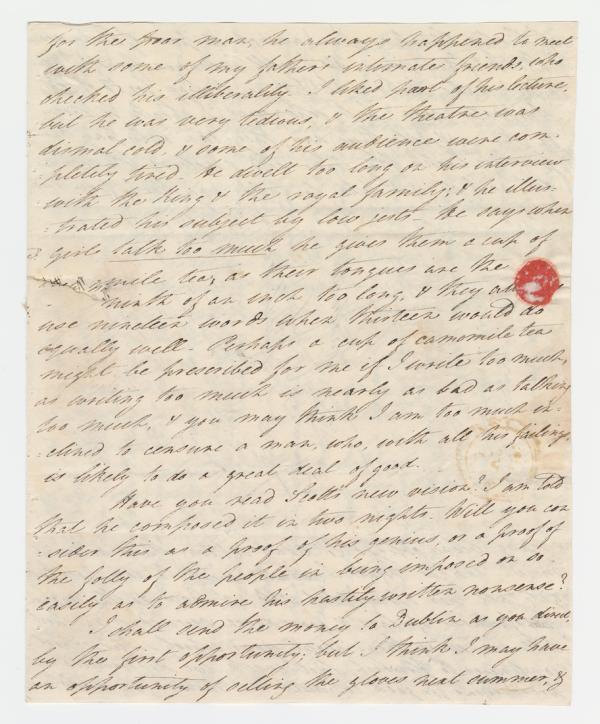 for the poor man, he always happened to meet
with some of my father's intimate friends, who
checked his illiberality. I liked part of his lecture,
but he was very tedious, & the theatre was
dismal cold, & some of his audience were com-
-pletely tired. He dwelt too long on his interview
with the King & the royal family; & he illus-
-trated his subject by low jests. He says when
girls talk too much he gives them a cup of
mile tea; as their tongues are the
ninth of an inch too long, & they
use nineteen words when thirteen would do
equally well. Perhaps a cup of camomile tea
might be prescribed for me if I write too much,
as writing too much is nearly as bad as talking
too much, & you may think I am too much in-
-clined to censure a man, who, with all his failings,
is likely to do a great deal of good.
Have you read Scott's new vision? I am told
that he composed it in two nights. Will you con
-sider this as a proof of his genius, or a proof of
the folly of the people in being imposed on so
easily as to admire his hastily written nonsense?
I shall send the money to Dublin as you direct,
by the first opportunity; but I think I may have
an opportunity of selling the gloves next summer, &